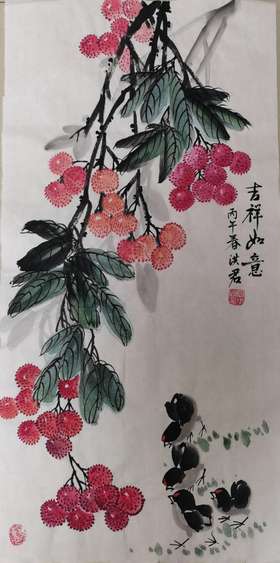 吉祥如意
丙午春洪君